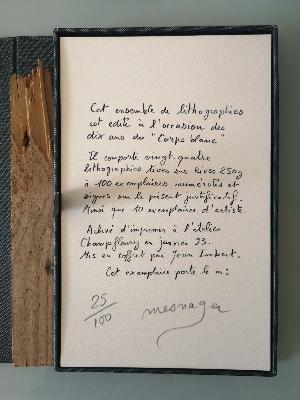 Cet ensemble de lithographies
est édité à l'occasion des
dix ans du "Corps blanc"
Il comporte vingt-quatre
lithographies tirées sur Rives 250g
à 100 exemplaires numérotés et
signés sur le présent justificatif.
Ainsi que 10 exemplaires d'artiste
Achevé d'imprimer à l'atelier
Champfleury en janvier 93.
Mis en coffret par Jean Limbert.
Cet exemplaire porte le n:
25/100 mesnager